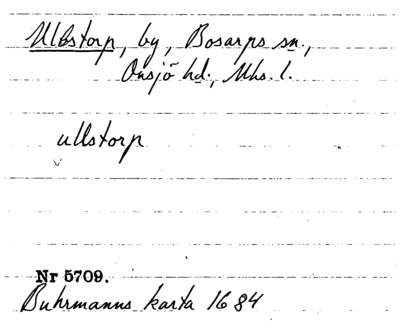 Ullstorp, by, Bosarps sn.,
Onsjö hd., Mhs. l.
ullstorp
Nr 5709.
Buhrmanns karta 1684